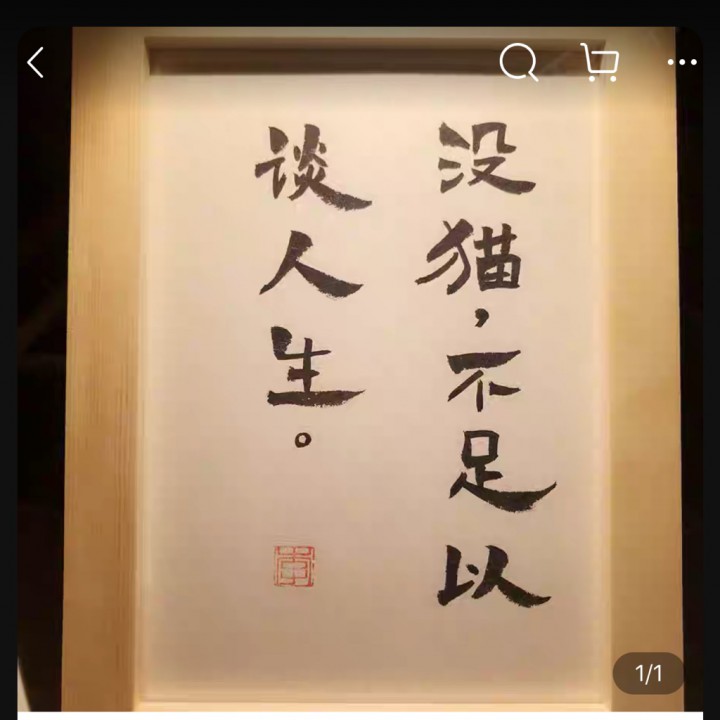 没猫，不足以
谈人生。
1/1